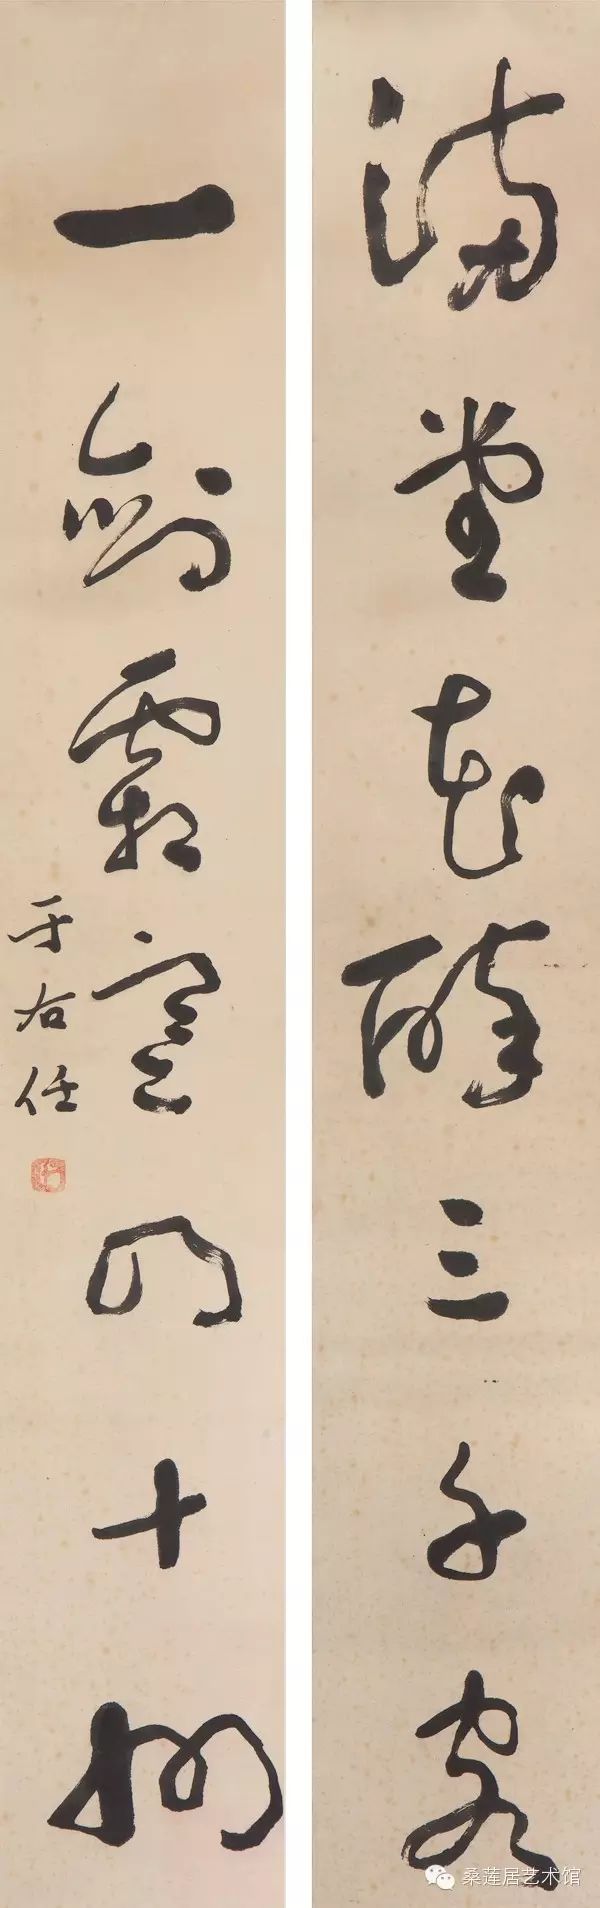 满堂花醉三千客
一剑霜寒四十州
于右任
桑莲居艺术馆